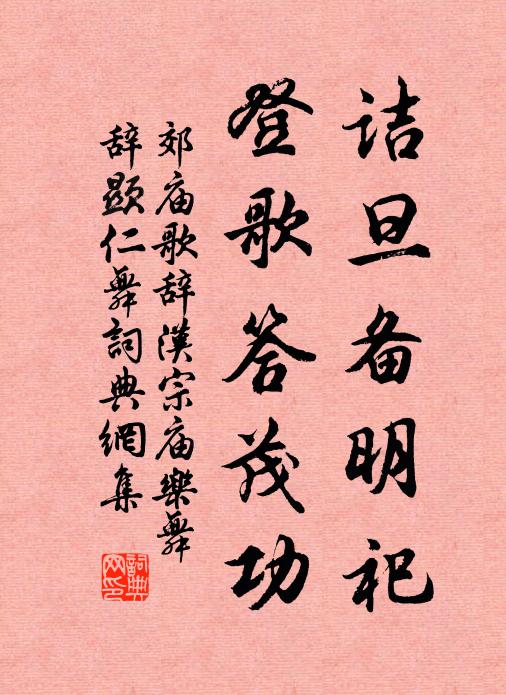 诘旦备明祀
登歌答茂功
郊庙歌辞汉宗庙樂舞
辞顯仁舞詞典網集
詞典
网印